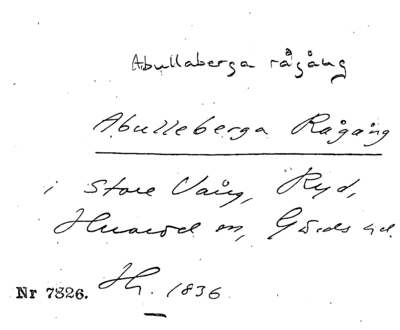 Abullaberga rågång
Abulleberga Rågång
i Store Vång, Ryd,
Huaröd sn, Gärds hd.
Nr 7826. Hh. 1836